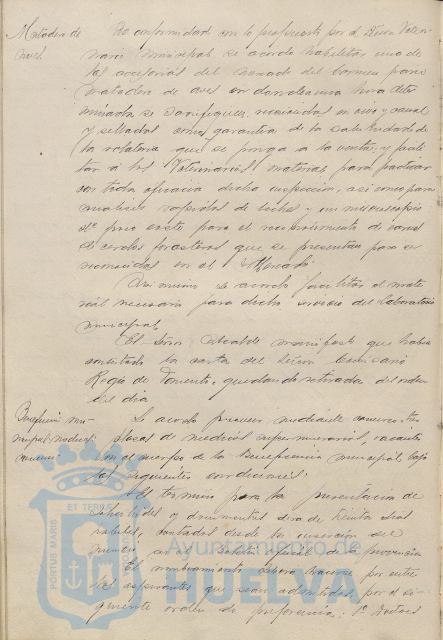 Matadero de
aves.
De conformidad con lo propuesto por el Señor Veteri-
nario municipal se acordó habilitar una de
las accesorias del mercado del Carmen para
matadero de aves en donde a una hora deter
minada se sacrifiquen, reconocidas en vivo y canal
y selladas como garantía de la salubridad de
la volateria que se ponga a la venta; y facili
tar a los Veterinarios material para practicar
con toda eficacia dicha inspección, asi como para
analisis rapidos de leches y un microscopio
de poco coste para el reconocimiento de carnes
de cerdos forasteros que se presentan para ser
reconocidas en el Mercado.
Asi mismo se acordó facilitar el mate
rial necesario para dicho servicio del Laboratorio
municipal.
El Señor Alcalde manifestó que habia
contestado la carta del Señor Comisario
Regio de Fomento, quedando retirada del orden
del dia
Beneficencia mu-
nicipal. Medicos
Se acordó proveer mediante concurso tres
plazas de medicos supernumerarios, vacantes
en el cuerpo de la beneficencia municipal bajo
las siguientes condiciones:
El termino para la presentacion de
solicitudes y documentos sera de treinta dias
habiles, contados desde la insercion del
anuncio en el Boletin oficial de la provincia
El nombramiento habra de hacerse por entre
los aspirantes que sean admitidos, por el si-
guiente orden de preferencia: 1º
PORTUS MARIS
ET TERRE
Ayuntamiento de
HUELVA